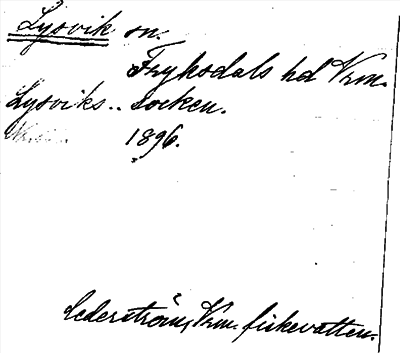 Lysvik sn.
Fryksdals hd Vrm.
Lysviks .. socken.
1896.
Cederström, Vrm. fiskevatten.